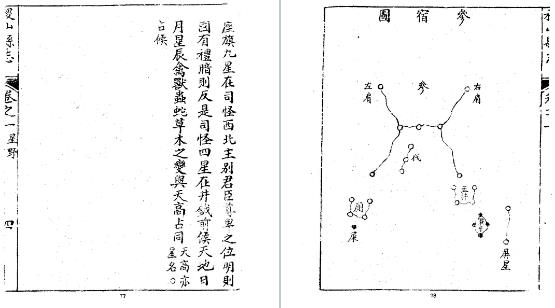 座旗九星在司怪西北主别君臣尊卑之位明則
國有禮暗則反是司怪四星在井鉞前候天地日
月星辰禽獸蟲蛇草木之變與天高占同天高亦
星名。
占候
山縣志
卷之一
星野
四
77
參宿圖
右肩
參
左肩
伐
玉井
廁
屎
屏星
78